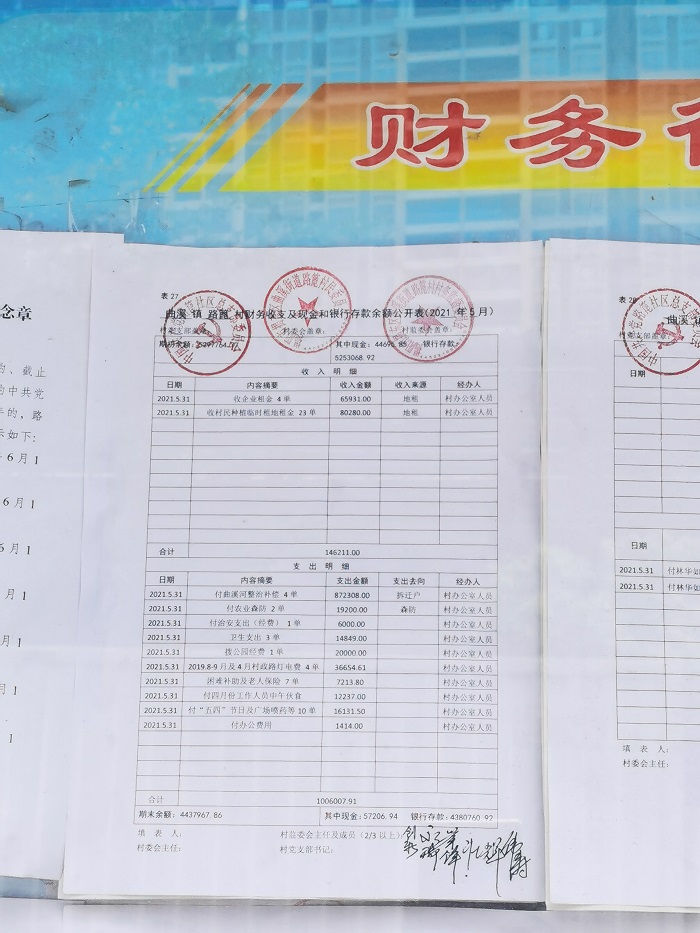 财务
念章
、截止
的中共党
年的，路
示如下：
6月1
6月1
6月1
月1
月1
月1
1
表27
曲溪 镇 路篦 村财务收支及现金和银行存款余额公开表（2021 年 5 月）
村委会盖章：
其中现金：44696.85 银行存款：
5253068.92
收 入 明 细
日期 内容摘要 收入金额 收入来源 经办人
2021.5.31 收企业租金 4 单 65931.00 地租 村办公室人员
2021.5.31 收村民种植临时租地租金 23 单 80280.00 地租 村办公室人员
合计 146211.00
支 出 明 细
日期 内容摘要 支出金额 支出去向 经办人
2021.5.31 付曲溪河整治补偿 4 单 872308.00 拆迁户 村办公室人员
2021.5.31 付农业森防 2 单 19200.00 森防 村办公室人员
2021.5.31 付治安支出（经费） 1 单 6000.00 村办公室人员
2021.5.31 卫生支出 3 单 14849.00 村办公室人员
2021.5.31 拨公园经费 1 单 20000.00 村办公室人员
2021.5.31 2019.8-9月及4月村政路灯电费 4 单 36654.61 村办公室人员
2021.5.31 困难补助及老人保险 7 单 7213.80 村办公室人员
2021.5.31 付四月份工作人员中午伙食 12237.00 村办公室人员
2021.5.31 付“五四”节日及广场喷药等 10 单 16131.50 村办公室人员
2021.5.31 付办公费用 1414.00 村办公室人员
合计 1006007.91
期末余额：4437967.86 其中现金：57206.94 银行存款：4380760.92
填 表 人： 村监委会主任及成员（2/3 以上）：
村委会主任： 村党支部书记：
表 28
曲溪
日期
日期
2021.5.31 付林华如
2021.5.31 付林华如
填 表 人：
村委会主任：